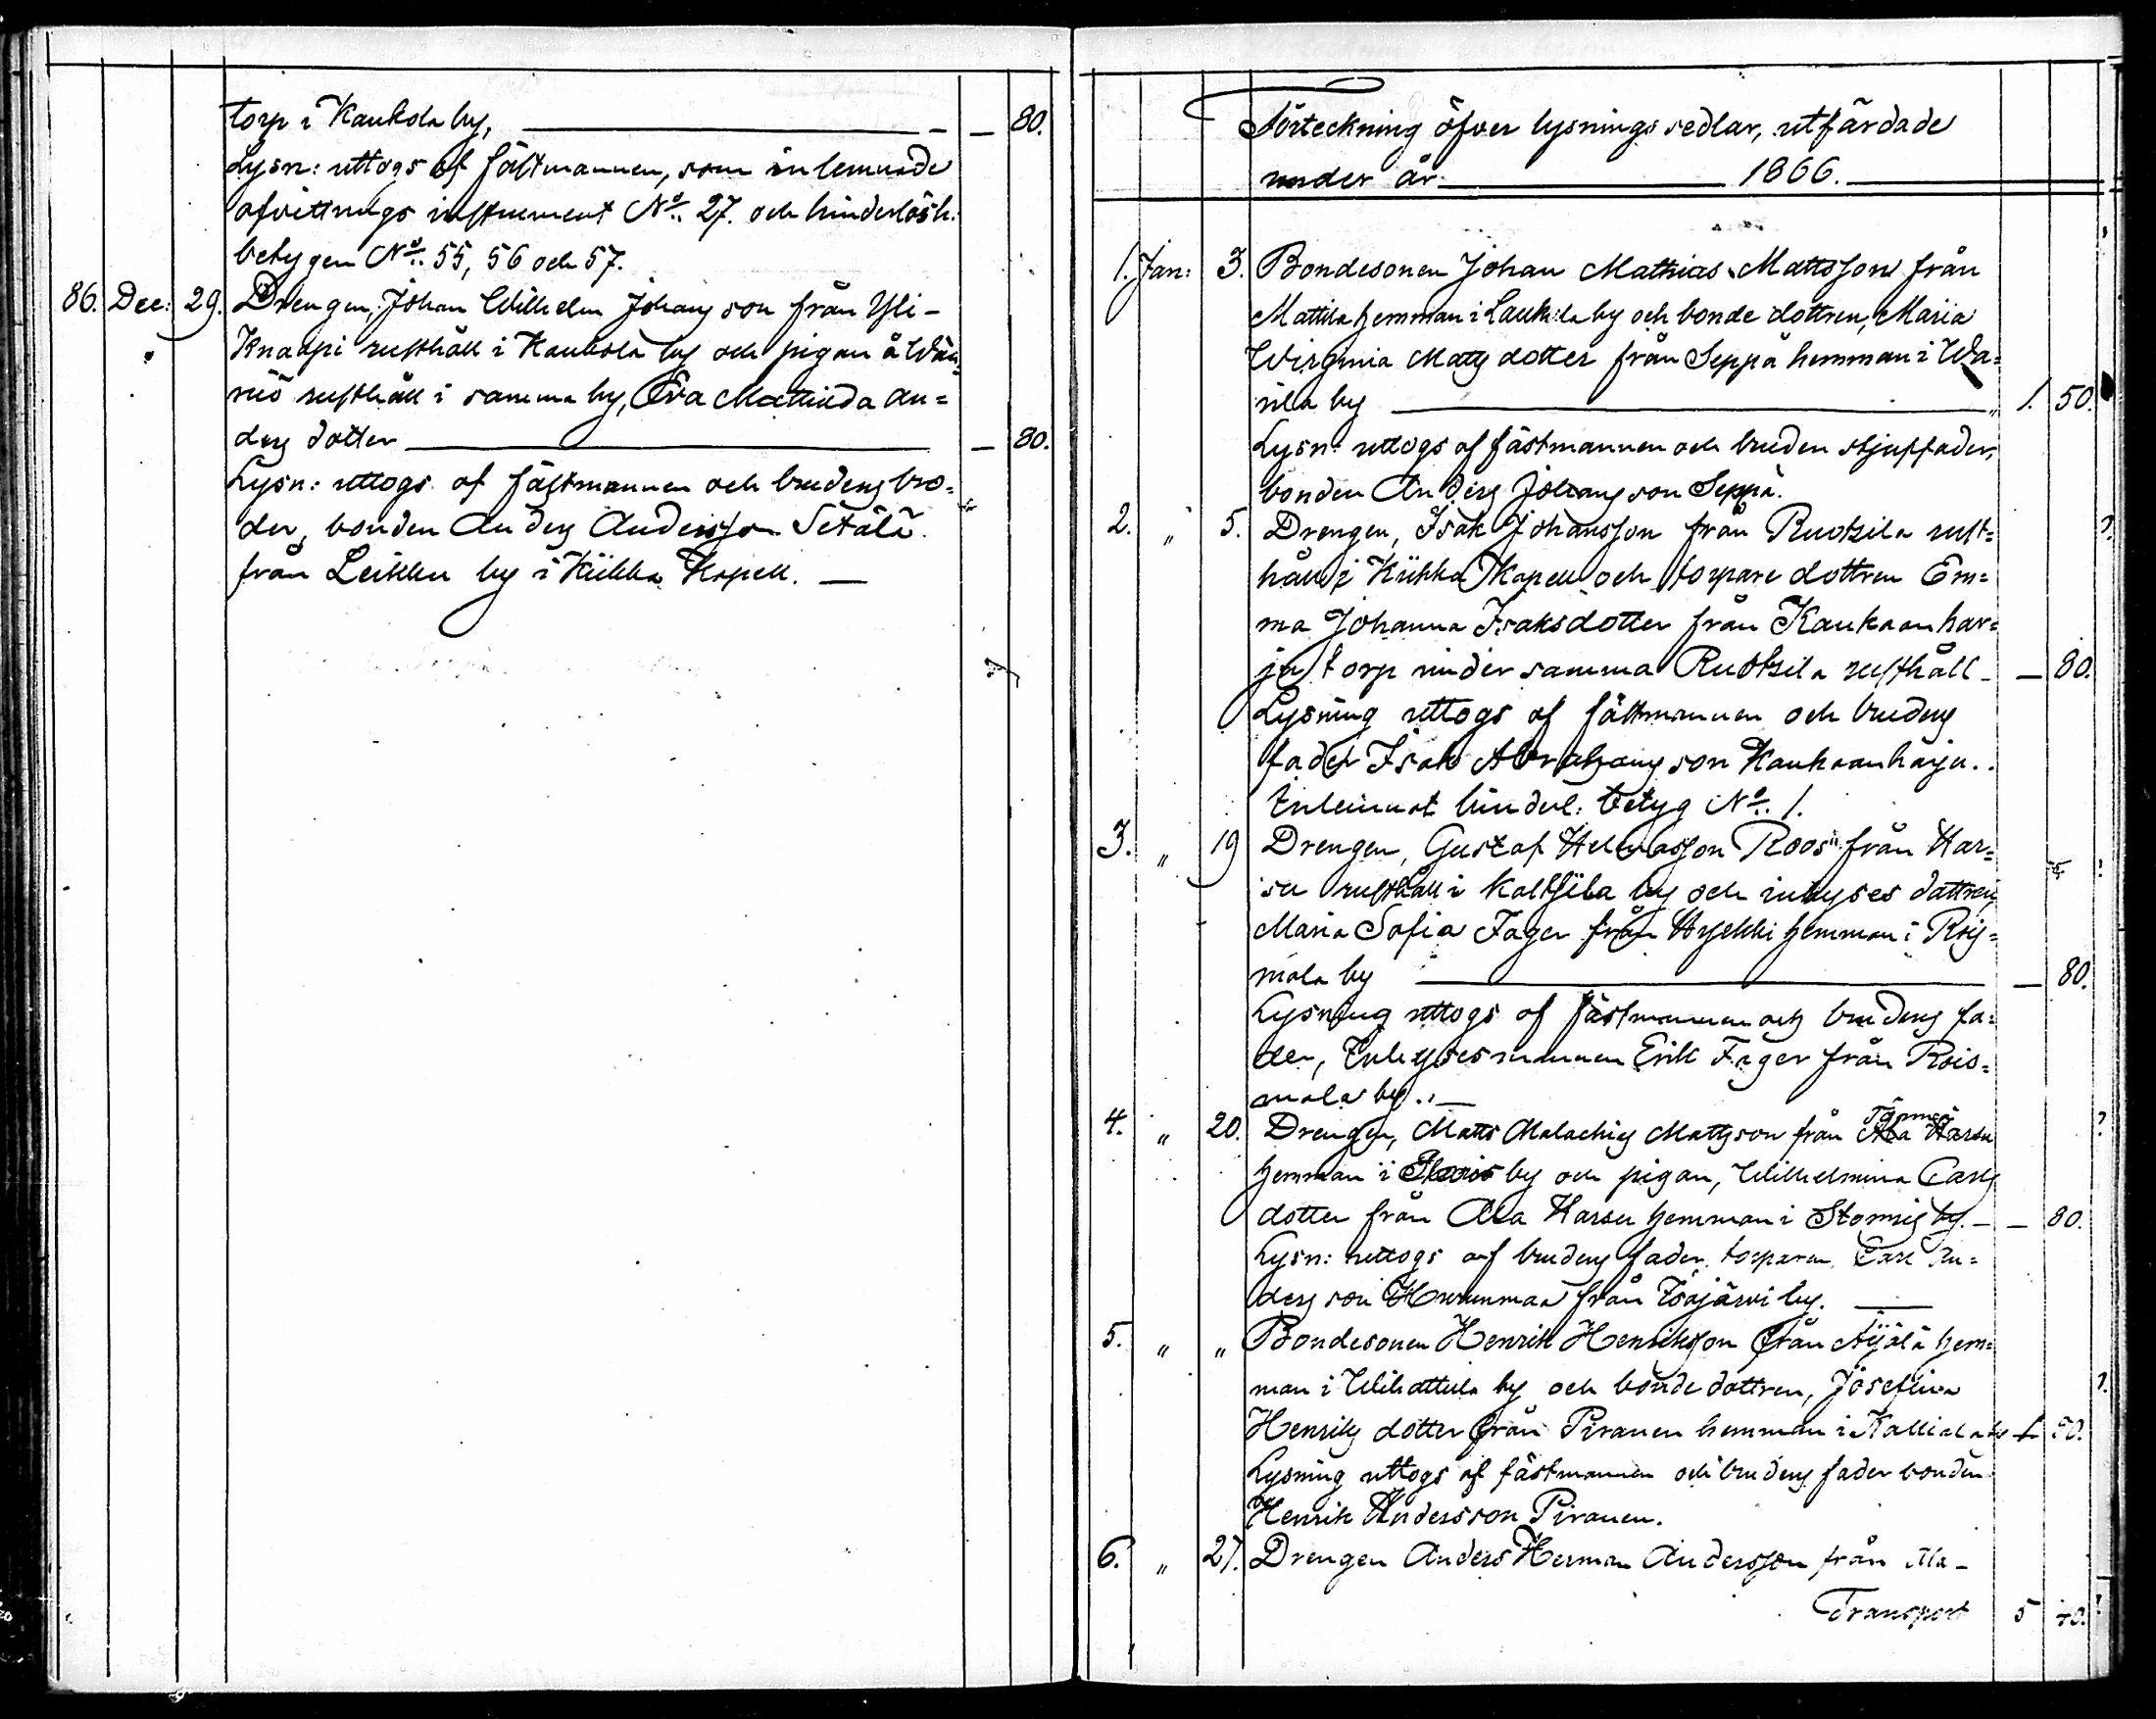 torp i Kaukola by, — — 80.
Lysn: uttogs af fästmannen, som inlemnade
afvittrings instrument No. 27. och hinderlösh.
betygen No. 55, 56 och 57.
86. Dec: 29. Drengen, Johan Wilhelm Johansson från Yli-
Knaapi rusthåll i Kaukola by och pigan å Wäi-
niö rusthåll i samma by, Eva Mathilda An=
ders dotter — — 80.
Lysn: uttogs af fästmannen och brudens bro=
der, bonden Anders Andersson Setälä
från Leikku by i Kiikka Kapell. —
Förteckning öfver lysningssedlar, utfärdade
under år 1866.
1. Jan: 3. Bondesonen Johan Mathias Mattsson från
Mattila hemman i Laukula by och bonde dottren, Maria
Wirginia Matts dotter från Seppä hemman i Wa=
rila by — 1. 50.
Lysn: uttogs af fästmannen och bruden stjuffader,
bonden Anders Johansson Seppä.
2. " 5. Drengen, Isak Johansson från Ruotsila rust=
håll i Kiikka Kapell och torpare dottren Em=
ma Johanna Isaksdotter från Kaukaanhar=
ju torp under samma Ruotsila rusthåll — — 80.
Lysning uttogs af fästmannen och brudens
fader Isak Abrahamsson Kaukaanharju..
Inlemnat hinderl: betyg No. 1.
3. " 19 Drengen, Gustaf Roos från Kar=
su rusthåll i by och inhyses dottren,
Maria Sofia Fager från hemman i Rois=
mala by — — 80.
Lysning uttogs af fästmannen och brudens fa=
der, Inhysesmannen Erik Fager från Rois=
mala by. —
4. " 20. Drengen, Matts Malachias Mattsson från Ala Karsu
hemman i by och pigan, Wilhelmina Carls
dotter från Ala Karsu hemman i Stormis by. — — 80.
Lysn: uttogs af brudens fader, torparen Carl An=
ders son från Isojärvi by. —
5. " " Bondesonen Henrik Henriksson från Äijälä hem=
man i Wihattula by och bonde dottren, Josefina
Henriks dotter från Piranen hemman i Kalliala by 1. 50.
Lysning uttogs af fästmannen och brudens fader bonden
Henrik Andersson Piranen.
6. " 27. Drengen Anders Herman Andersson från Ala-
Transport 5 40.